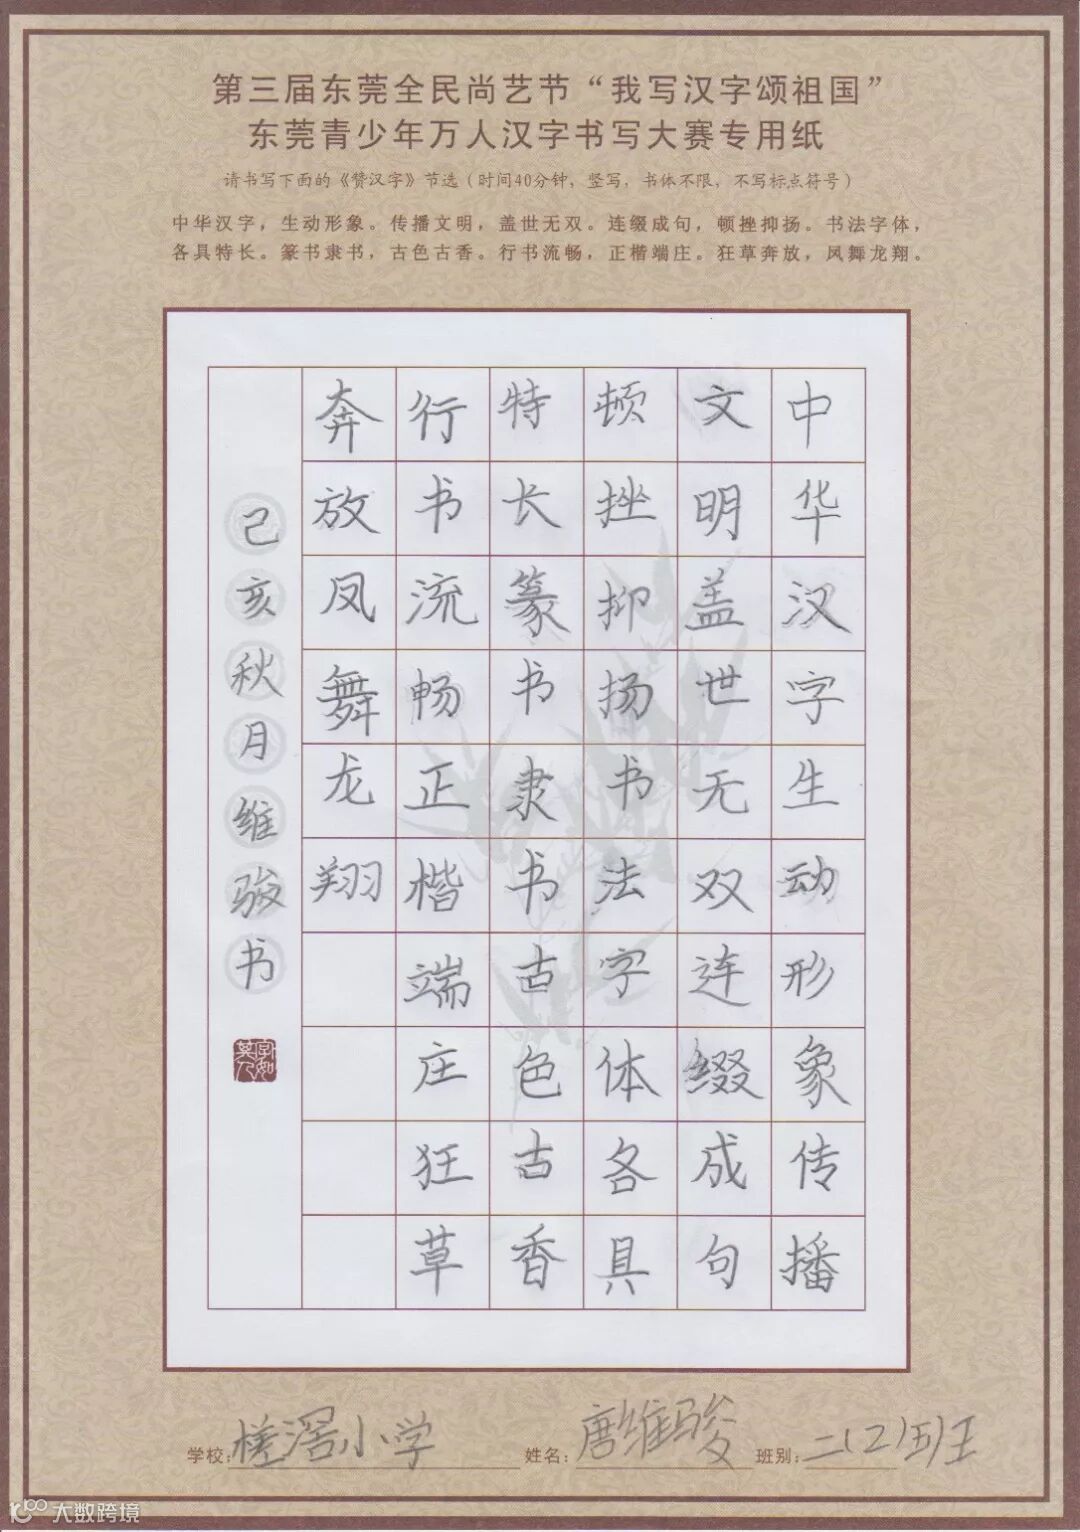 第三届东莞全民尚艺节“我写汉字颂祖国”
东莞青少年万人汉字书写大赛专用纸
请书写下面的《赞汉字》节选（时间40分钟，竖写，书体不限，不写标点符号）
中华汉字，生动形象。传播文明，盖世无双。连缀成句，顿挫抑扬。书法字体，
各具特长。篆书隶书，古色古香。行书流畅，正楷端庄。狂草奔放，凤舞龙翔。
中华汉字生动形象传播
文明盖世无双连缀成句
顿挫抑扬书法字体各具
特长篆书隶书古色古香
行书流畅正楷端庄狂草
奔放凤舞龙翔
己亥秋月维骏书
字如其人
学校：槎滘小学 姓名：唐维骏 班别：二（2）班
大数跨境